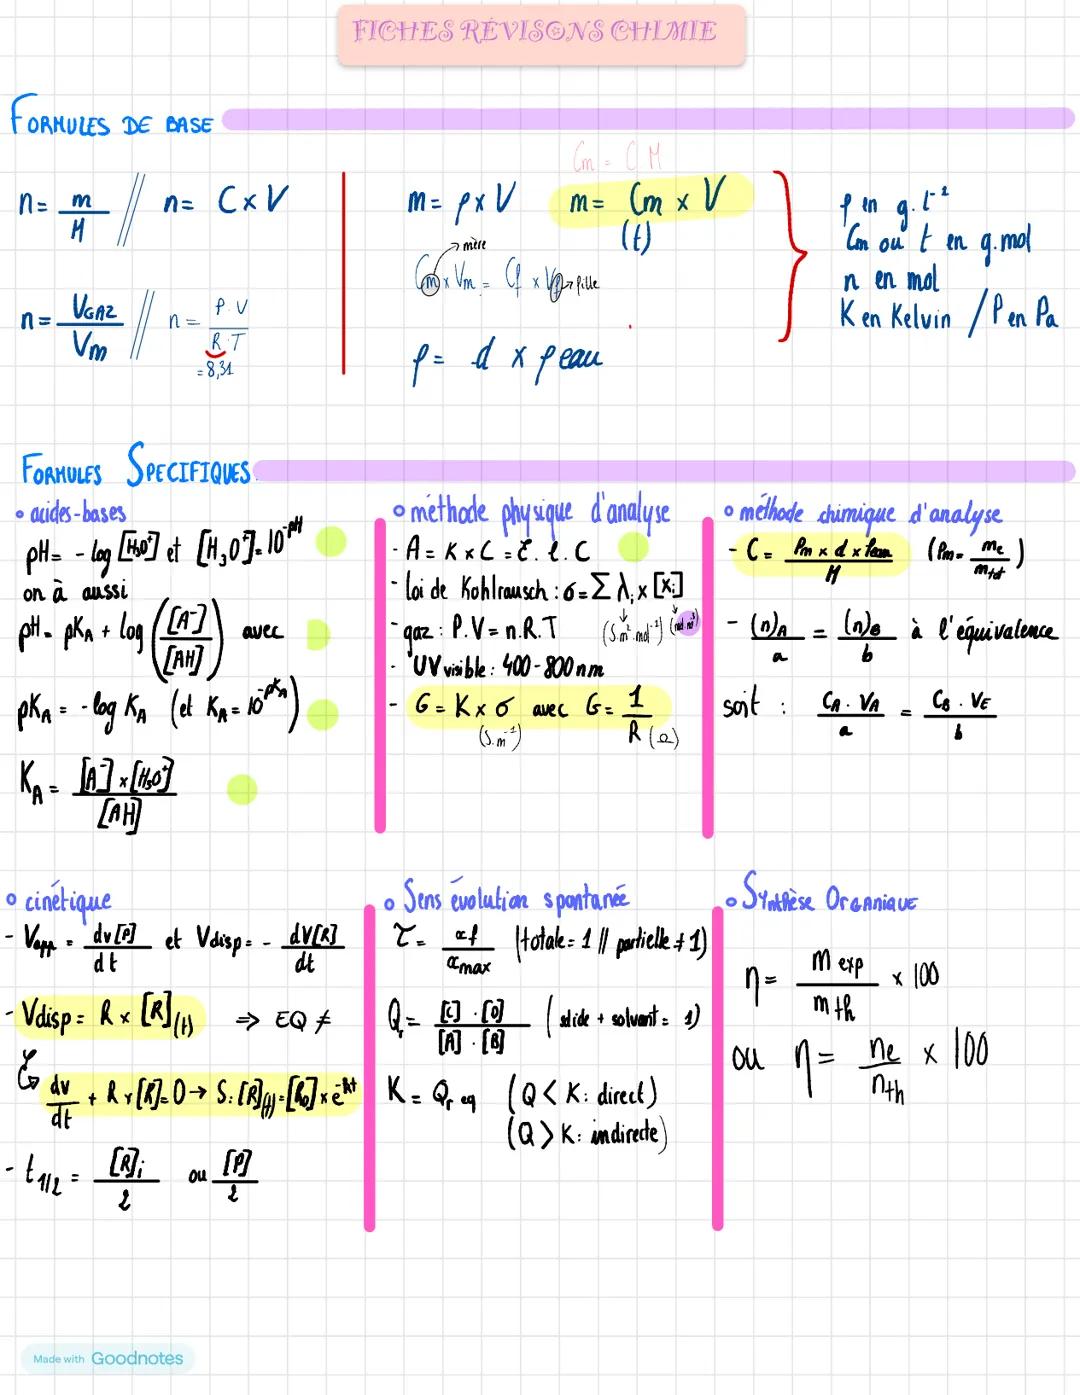 FICHES RÉVISONS CHIMIE
FORMULES DE BASE
n = m / M // n = C × V
n = VGAZ / Vm // n = P.V / R.T
= 8,31
m = ρ × V
Cm = C M
m = Cm × V
(t)
mère
Cm × Vm = Cf × Vf → fille
ρ = d × ρ eau
ρ en g.L⁻²
Cm ou t en g.mol
n en mol
K en Kelvin / P en Pa
FORMULES SPECIFIQUES
• acides-bases
pH = - log [H₃O⁺] et [H₃O⁺] = 10⁻ᵖᴴ
on à aussi
pH = pKA + log ([A⁻] / [AH]) avec
pKA = - log KA (et KA = 10⁻ᵖᴷᴬ)
KA = [A⁻] × [H₃O⁺] / [AH]
• méthode physique d'analyse
- A = K × C = Ɛ. l. C
- loi de Kohlrausch : σ = Σ λi × [Xi]
(S.m².mol⁻¹) (mol.m³)
- gaz : P.V = n.R.T
- UV visible : 400 - 800 nm
- G = K × σ avec G = 1 / R (Ω)
(S.m⁻¹)
• méthode chimique d'analyse
- C = Pm × d × ρeau / M (Pm = me / mtot)
- (n)A / a = (n)B / b à l'équivalence
soit : CA . VA / a = CB . VE / b
• cinétique
- Vapp = dv[P] / dt et Vdisp = - dV[R] / dt
- Vdisp = R × [R](t) ⇒ EQ ≠
↳ dv / dt + R × [R] = 0 → S : [R](t) = [R₀] × e⁻ᵏᵗ
- t 1/2 = [R]i / 2 ou [P] / 2
• Sens évolution spontanée
τ = xf / xmax (totale = 1 // partielle ≠ 1)
Qr = [C] . [D] / [A] . [B] (solide + solvant = 1)
K = Qr eq (Q < K : direct)
(Q > K : indirecte)
• SYNTHÈSE ORGANIQUE
η = m exp / m th × 100
ou η = ne / nth × 100
Made with Goodnotes